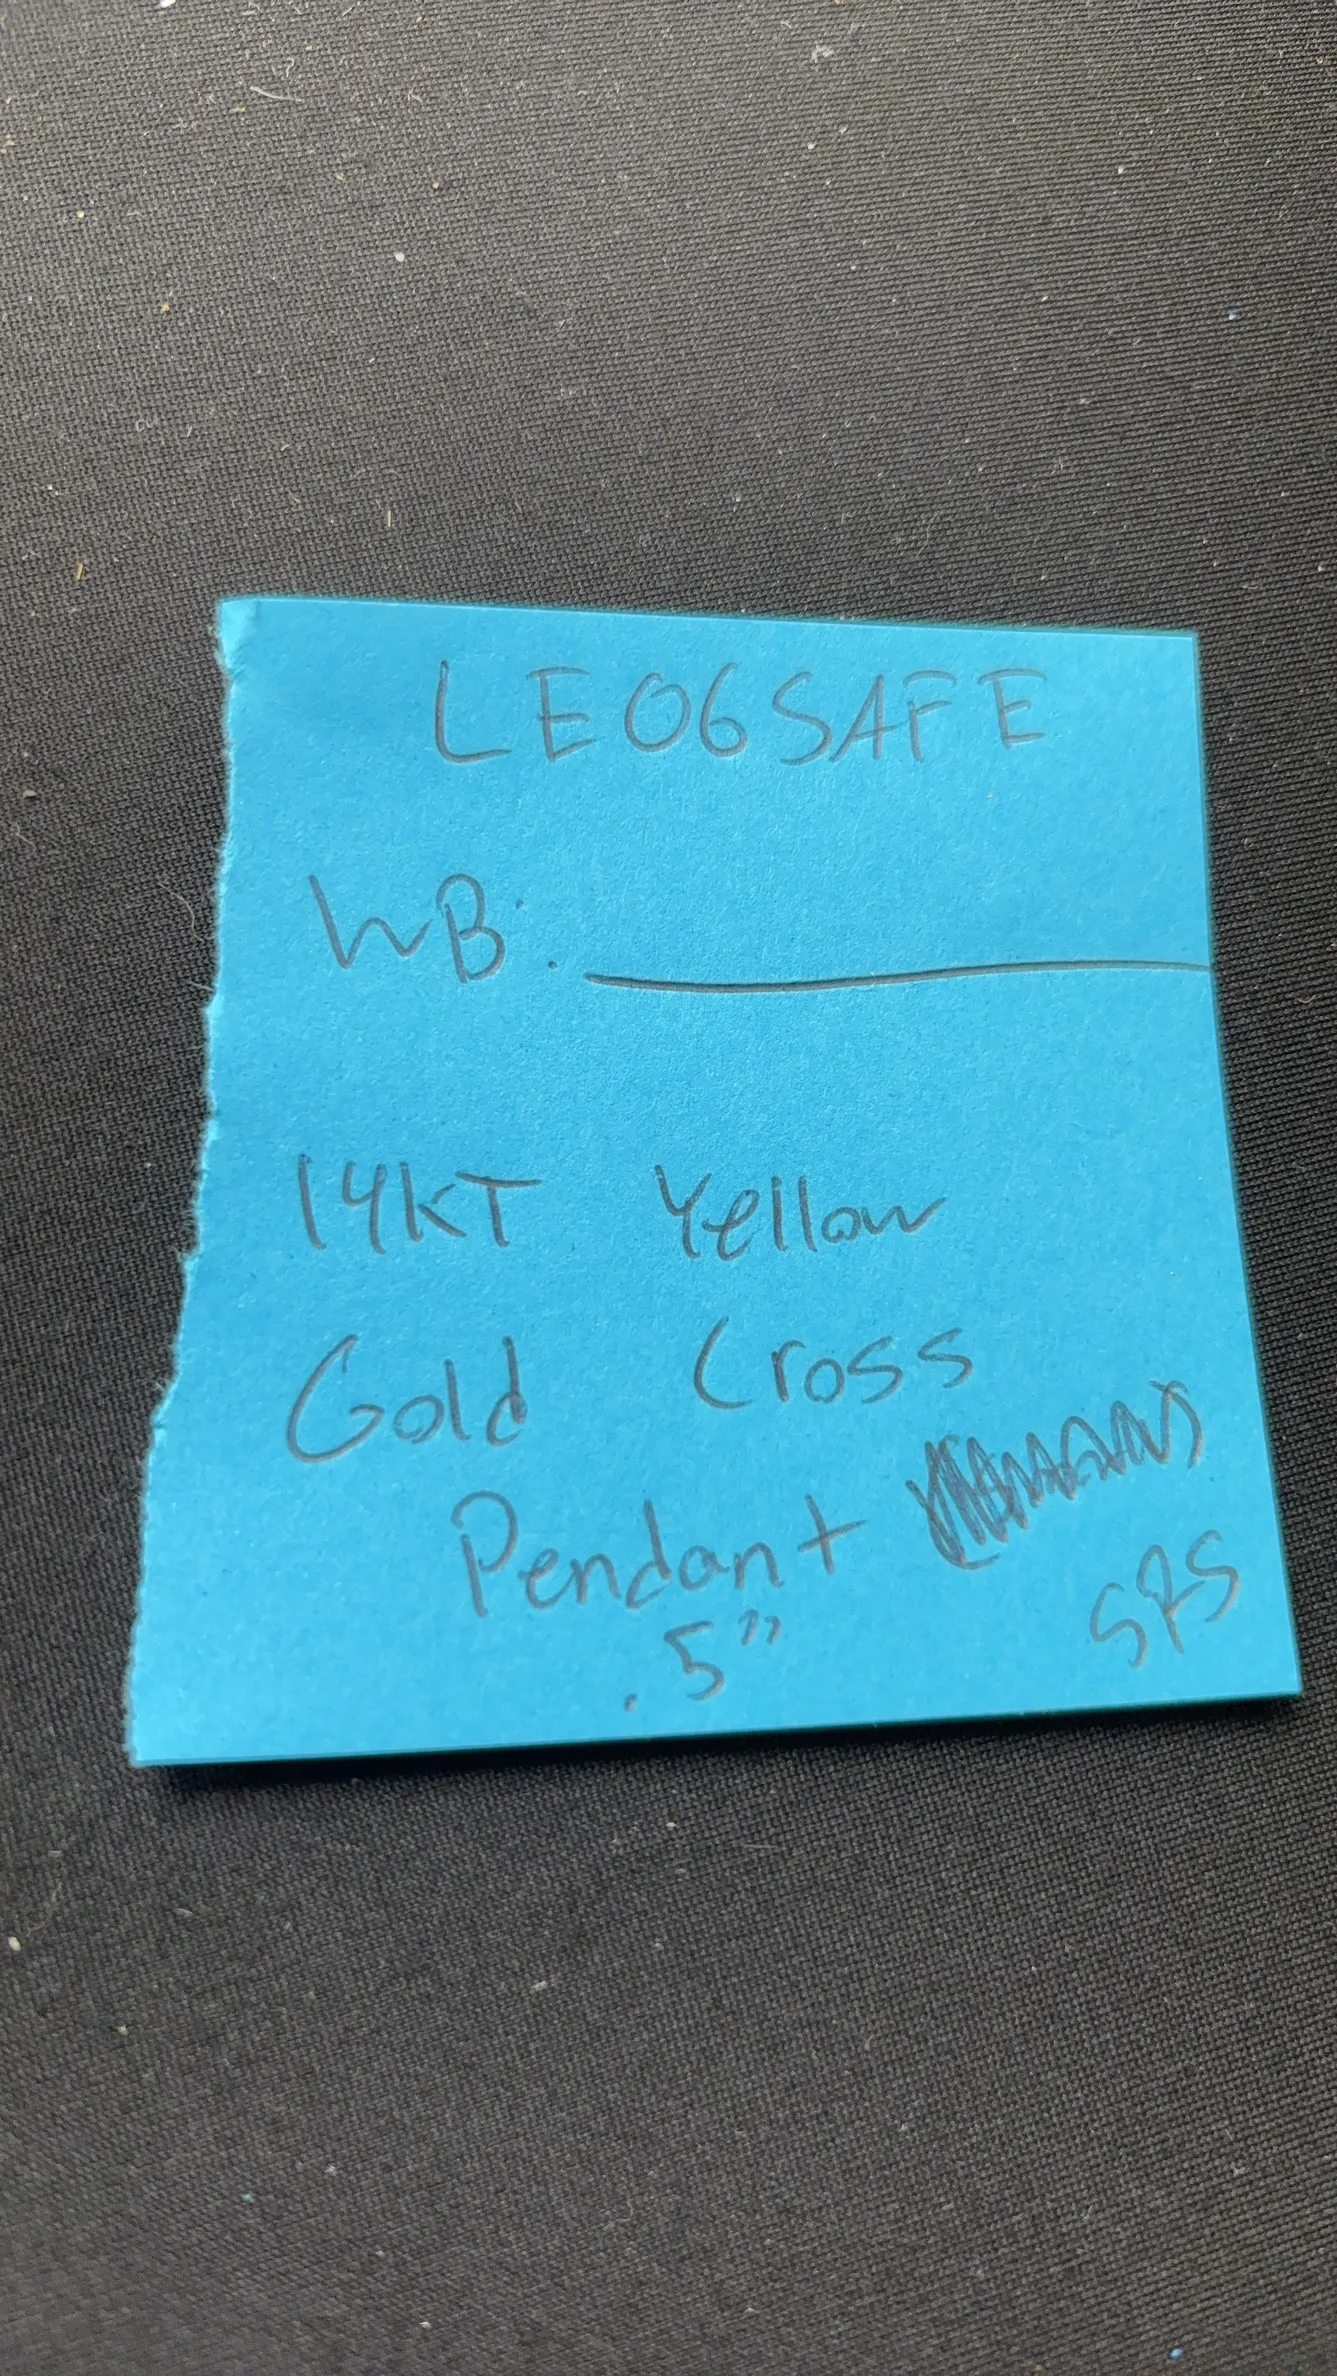 LE06SAFE
WB: ____________
14KT Yellow
Gold Cross
Pendant
.5" SRS